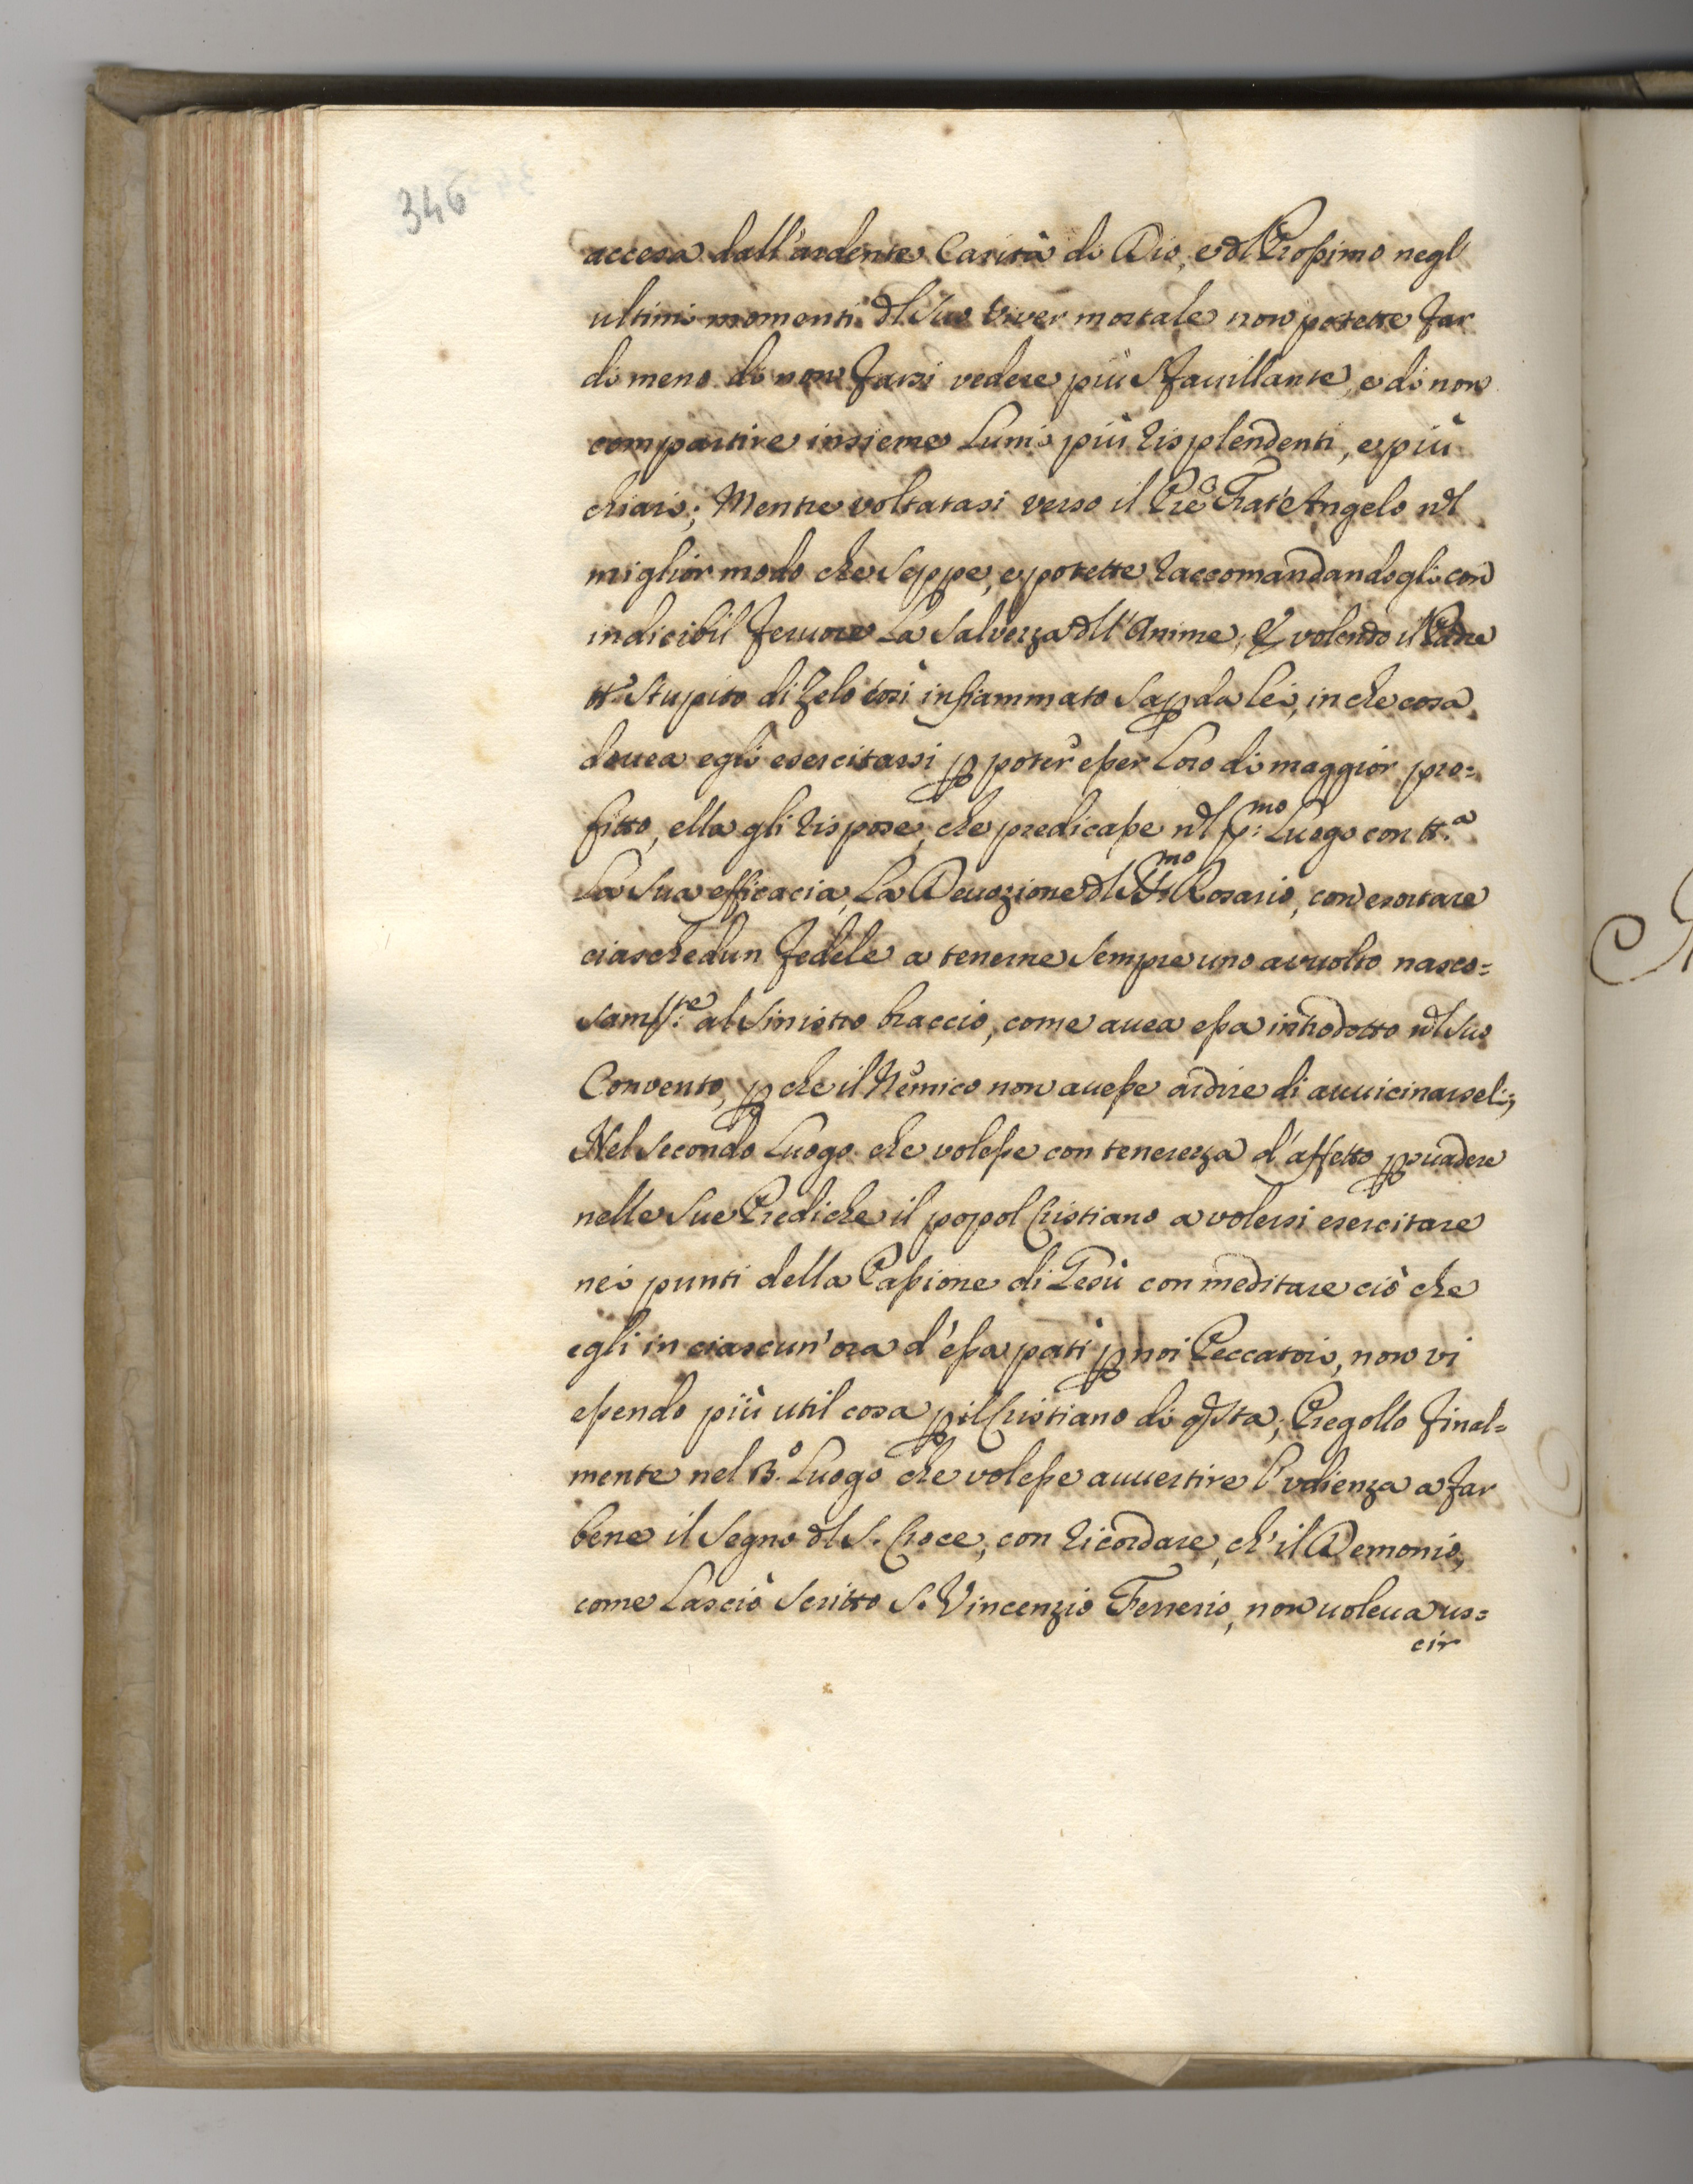 346
accesa dall'ardente Carità di Dio, e dl Prossimo negl
ultimi momenti dl suo viver mortale non potette far
di meno di non farsi vedere più sfavillante, e di non
compartire insieme Lumi più risplendenti, e più
chiari; Mentre voltatasi verso il Pre Frat'Angelo nl
miglior modo che seppe, e potette raccomandandogli con
indicibil feruore La salvezza dll'Anime, & volendo il Padre
tto stupito di Zelo così infiammato sap da lei, in che cosa
douea egli esercitarsi p poter esser Loro di maggior pro=
fitto, ella gli rispose, che predicasse nl p:mo Luogo con tt.a
La sua efficacia, La Deuozione dl SS.mo Rosario, con esortare
ciaschedun fedele a tenerne sempre uno avvolto nasco=
samte al sinistro braccio, come auea essa introdotto nl suo
Convento, p che il Nemico non auesse ardire di auuicinarsel:;
Nel secondo Luogo che volesse con tenerezza d'affetto psuadere
nelle sue Prediche il popol Cristiano a volersi esercitare
nei punti della Passione di Gesù con meditare ciò che
egli in ciascun'ora d'essa patì p noi Peccatori, non vi
essendo più util cosa p il Cristiano di qsta; Pregollo final=
mente nel 3.o Luogo che volesse auuertire l'vdienza a far
bene il segno dl S. Croce, con ricordare, ch'il Demonio,
come Lasciò scritto S. Vincenzio Ferrerio, non uoleua us=
cir